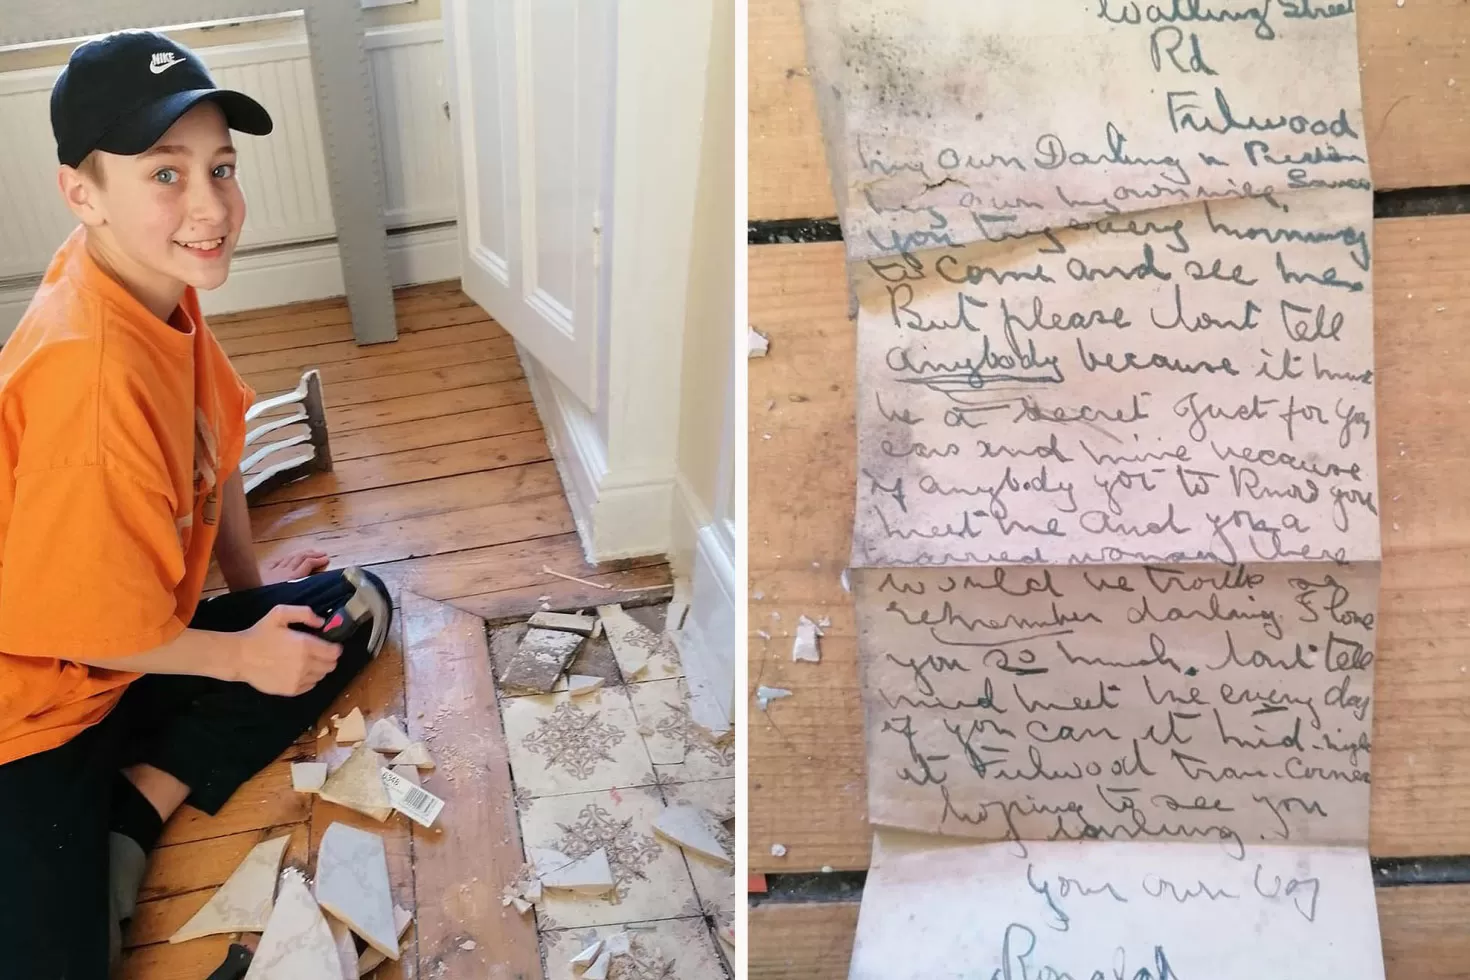 NIKE
6346
Watling Street
Rd
Fulwood
My own Darling in Preston
Lancs
my own
you try every morning
to come and see me.
But please dont tell
anybody because it must
be a secret Just for you
ears and mine because
if anybody got to know you
meet me and you a
married woman there
would be trouble so
remember darling I love
you so much. dont tell
and meet me every day
if you can it mid-night
at Fulwood Tram-Corner
hoping to see you
darling.
your own
Ronald